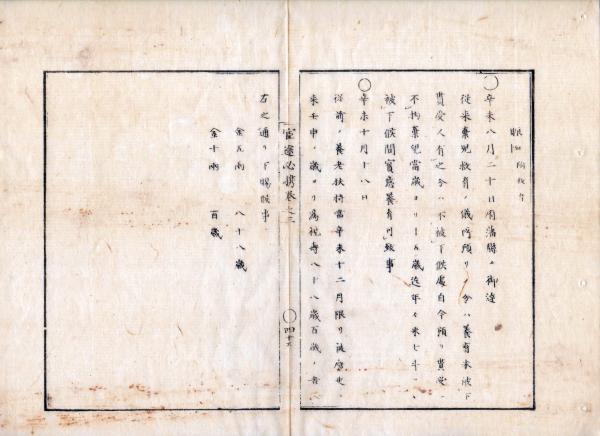 賑恤 済救育
○辛未八月二十日府藩縣ヘ御達
従来棄児救育ノ儀所預リノ分ハ養育米被下
貰受人有之分ハ不被下候處自今預リ貰受ニ
不拘棄児當歳ヨリ十五歳迄年々米七斗ツヽ
被下候間實意養育可致事
○辛未十月十八日
従前ノ養老扶持當辛未十二月限リ被廃更ニ
来壬申ノ歳ヨリ為祝寿八十八歳百歳ノ者ヘ
官途必携巻之三
○四十六
右之通リ下賜候事
金五両 八十八歳
金十両 百歳